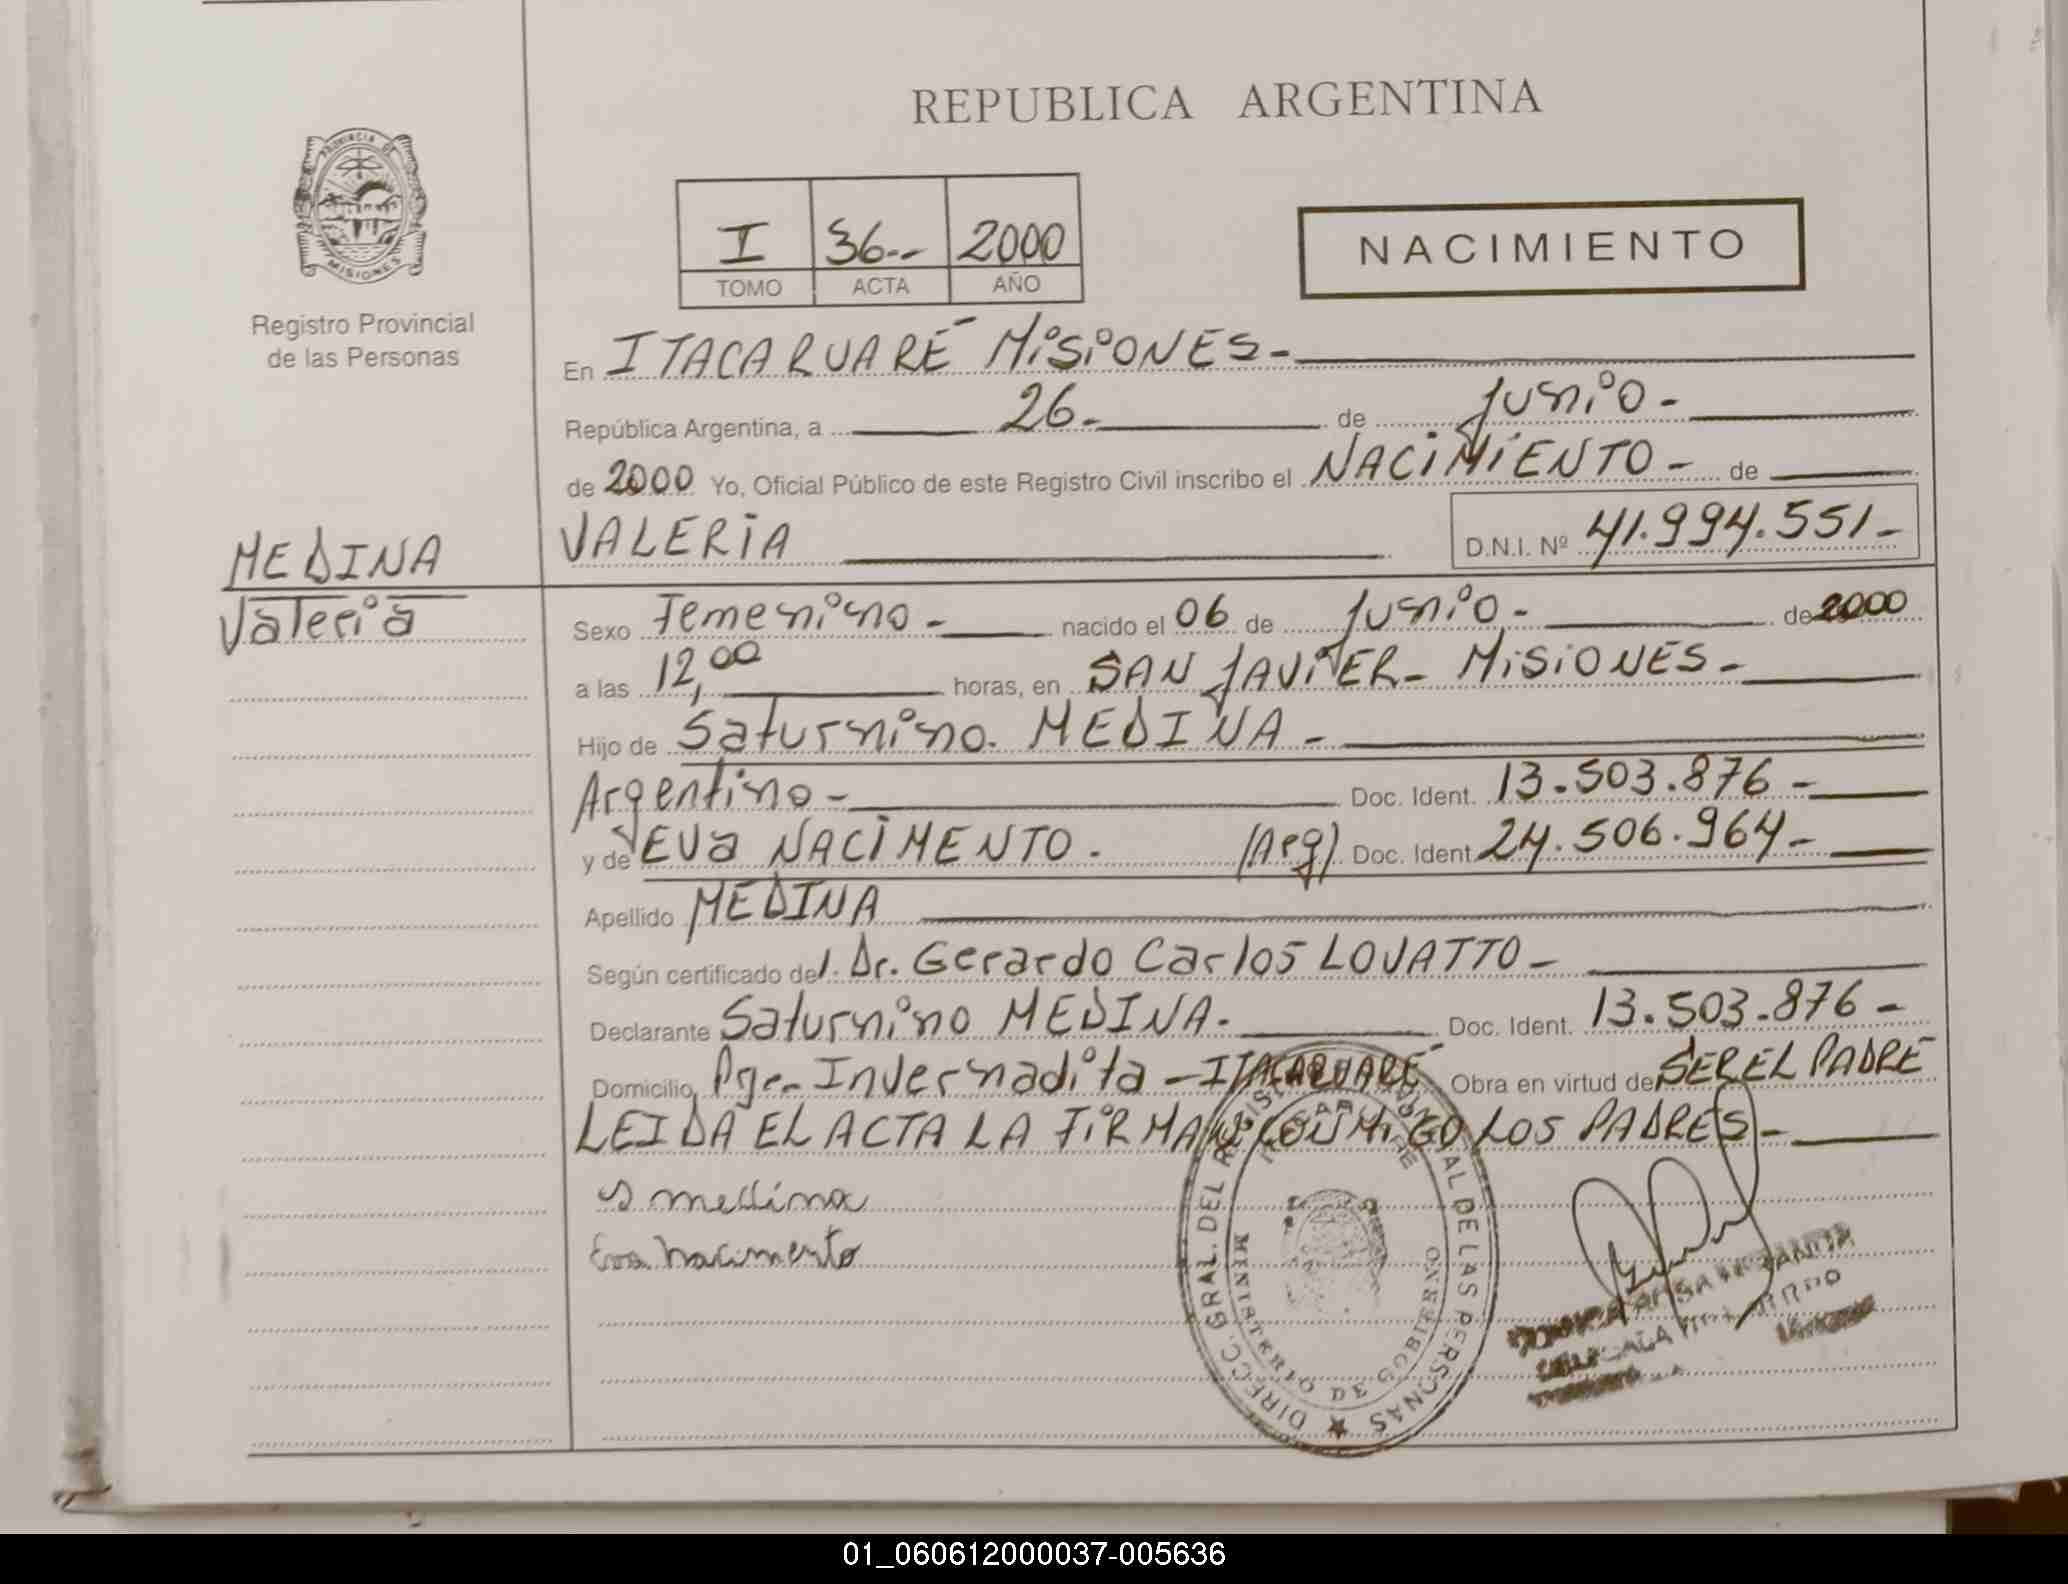 REPUBLICA ARGENTINA
PROVINCIA DE
MISIONES
Registro Provincial
de las Personas
I 36-- 2000
TOMO ACTA AÑO
NACIMIENTO
En ITACARUARÉ MiSiONES-
República Argentina, a 26- de junio-
de 2000 Yo, Oficial Público de este Registro Civil inscribo el NACiMiENTO- de
MEDINA
Valeria
VALERiA D.N.I. Nº 41.994.551-
Sexo Femenino- nacido el 06 de junio- de 2000
a las 12,00 horas, en SAN JAViER- MiSiONES-
Hijo de Saturnino. MEDINA-
Argentino- Doc. Ident. 13.503.876-
y de EVa NACiMENTO. (Arg) Doc. Ident 24.506.964-
Apellido MEDINA
Según certificado del. Dr. Gerardo Carlos LOVATTO-
Declarante Saturnino MEDINA- Doc. Ident. 13.503.876-
Domicilio Pje- Invernadita-ITACARUARÉ Obra en virtud de SER EL PADRE
LEIDA EL ACTA LA FiRMAN CONMiGO LOS PADRES-
S medina
Eva nacimento
DIRECC. GRAL. DEL REGISTRO PROVINCIAL DE LAS PERSONAS
MINISTERIO DE GOBIERNO
01_060612000037-005636